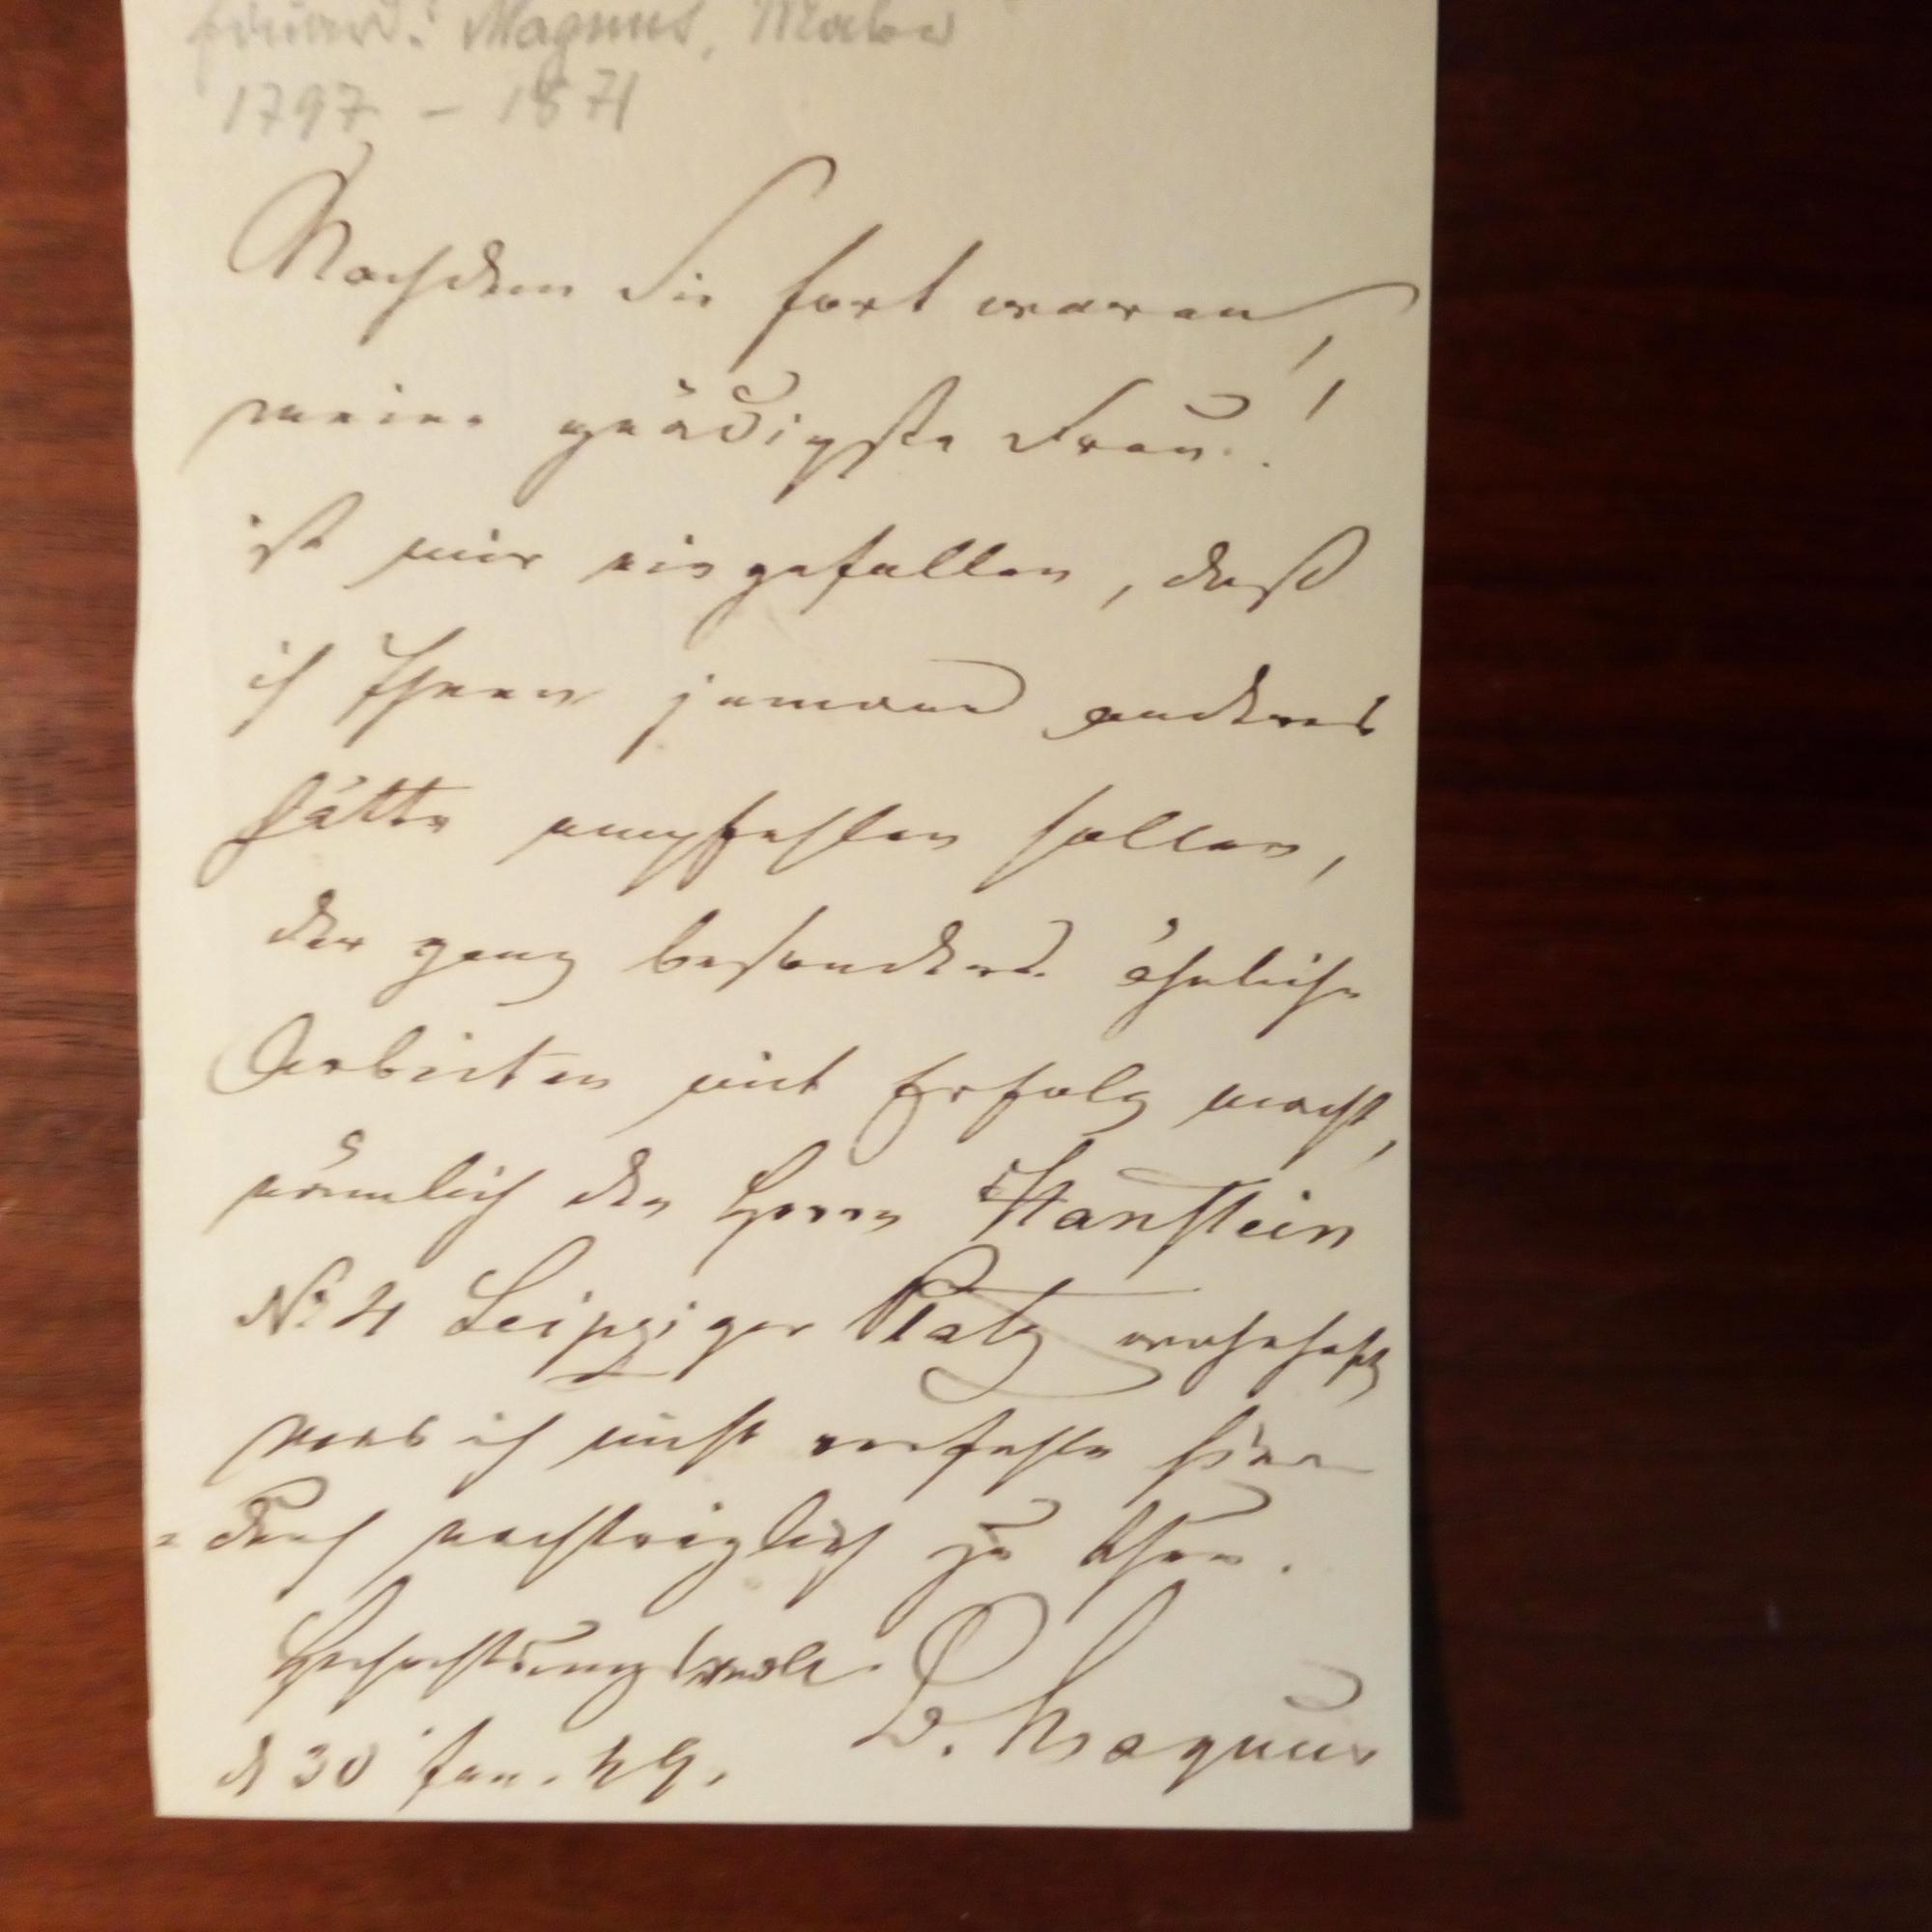 Eduard Magnus, Maler
1797 - 1871
Nachdem Sie fort waren,
meine gnädigste Frau!
ist mir eingefallen, daß
ich Ihnen jemand anders
hätte empfehlen sollen,
der ganz besonders ähnliche
Arbeiten mit Erfolg macht,
nämlich den Herrn Hanstein
No 4 Leipziger Platz wohnhaft
was ich nicht verfehle hier
=durch nachträglich zu thun.
Hochachtungsvoll. E. Magnus
d 30 Jan. 49.